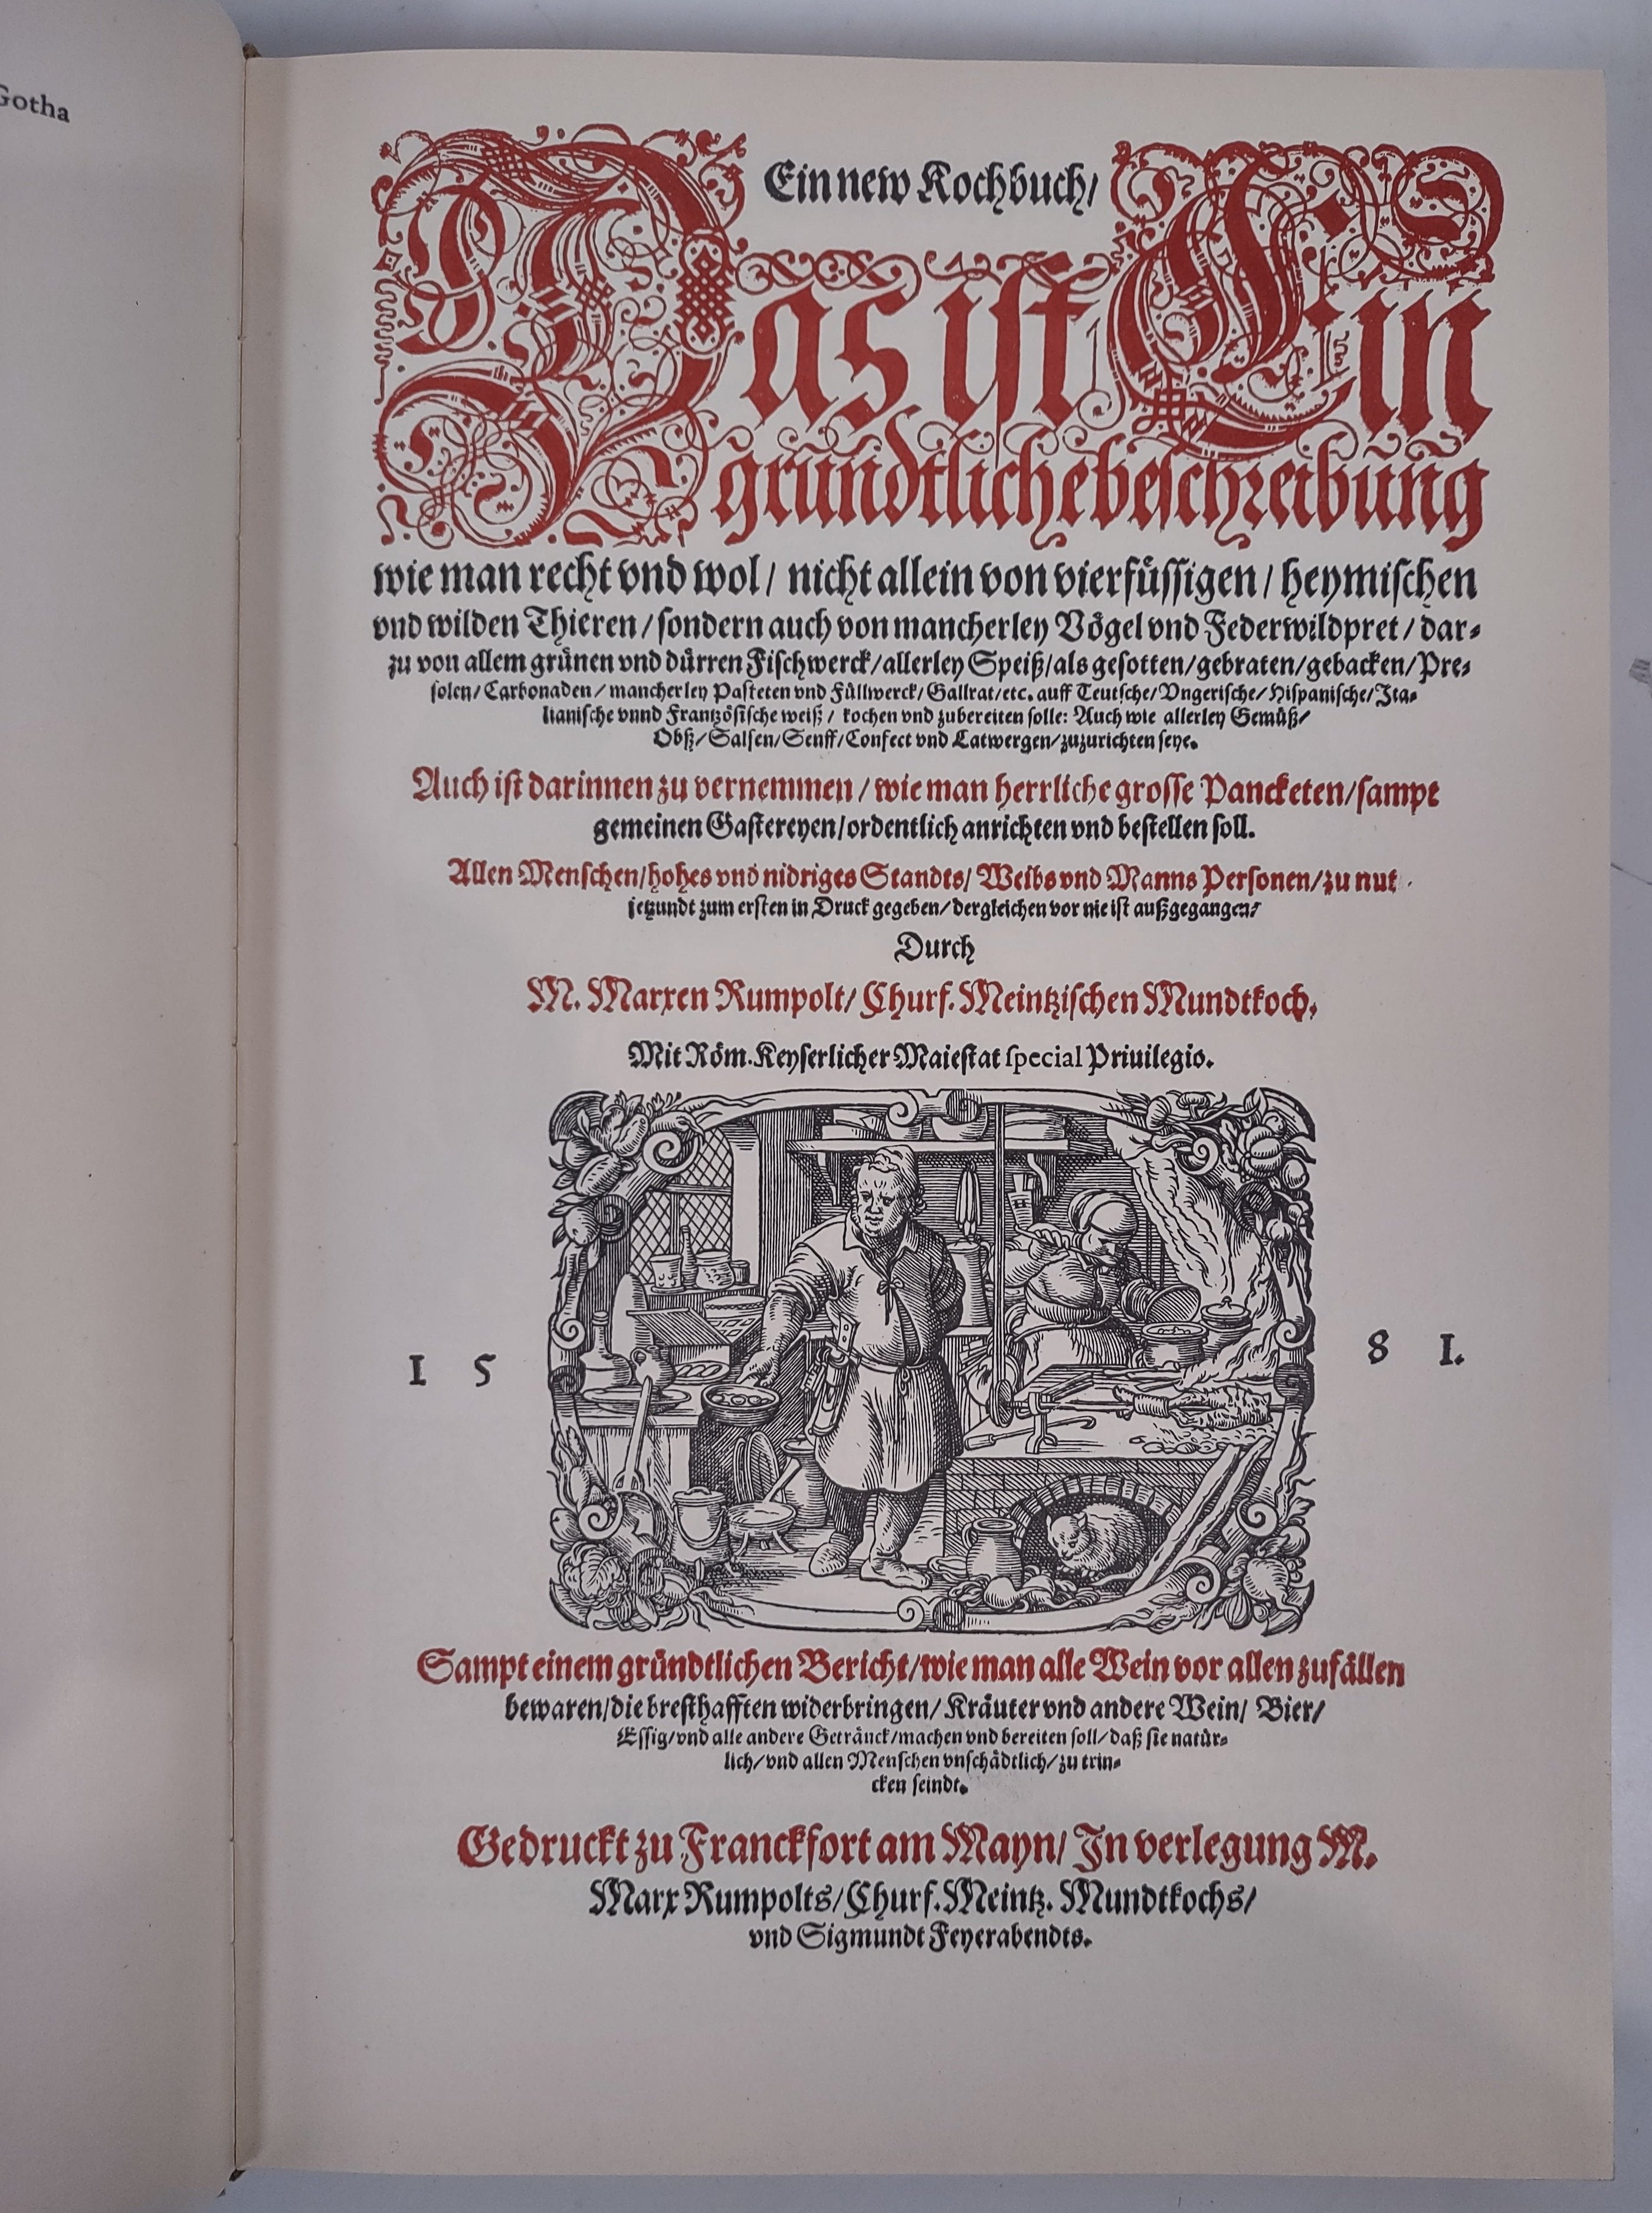 Gotha
Ein new Kochbuch/
Das ist Ein
gründtliche beschreibung
wie man recht vnd wol/ nicht allein von vierfüssigen/ heymischen
vnd wilden Thieren/ sondern auch von mancherley Vögel vnd Federwildpret/ dar-
zu von allem grünen vnd dürren Fischwerck/ allerley Speiß/ als gesotten/ gebraten/ gebacken/ Pre-
solen/ Carbonaden/ mancherley Pasteten vnd Füllwerck/ Gallrat/ etc. auff Teutsche/ Vngerische/ Hispanische/ Ita-
lianische vnnd Frantzösische weiß/ kochen vnd zubereiten solle: Auch wie allerley Gemüß/
Obß/ Salsen/ Senff/ Confect vnd Latwergen/ zuzurichten seye.
Auch ist darinnen zu vernemmen/ wie man herrliche grosse Pancketen/ sampt
gemeinen Gastereyen/ ordentlich anrichten vnd bestellen soll.
Allen Menschen/ hohes vnd nidriges Standts/ Weibs vnd Manns Personen/ zu nutz
jetzundt zum ersten in Druck gegeben/ dergleichen vor nie ist außgegangen/
Durch
M. Marxen Rumpolt/ Churf. Meintzischen Mundtkoch.
Mit Röm. Keyserlicher Maiestat special Priuilegio.
1 5 8 1.
Sampt einem gründtlichen Bericht/ wie man alle Wein vor allen zufällen
bewaren/ die bresthafften widerbringen/ Kräuter vnd andere Wein/ Bier/
Essig/ vnd alle andere Getränck/ machen vnd bereiten soll/ daß sie natür-
lich/ vnd allen Menschen vnschädtlich/ zu trin-
cken seindt.
Gedruckt zu Franckfort am Mayn/ In verlegung M.
Marx Rumpolts/ Churf. Meintz. Mundtkochs/
vnd Sigmundt Feyerabendts.